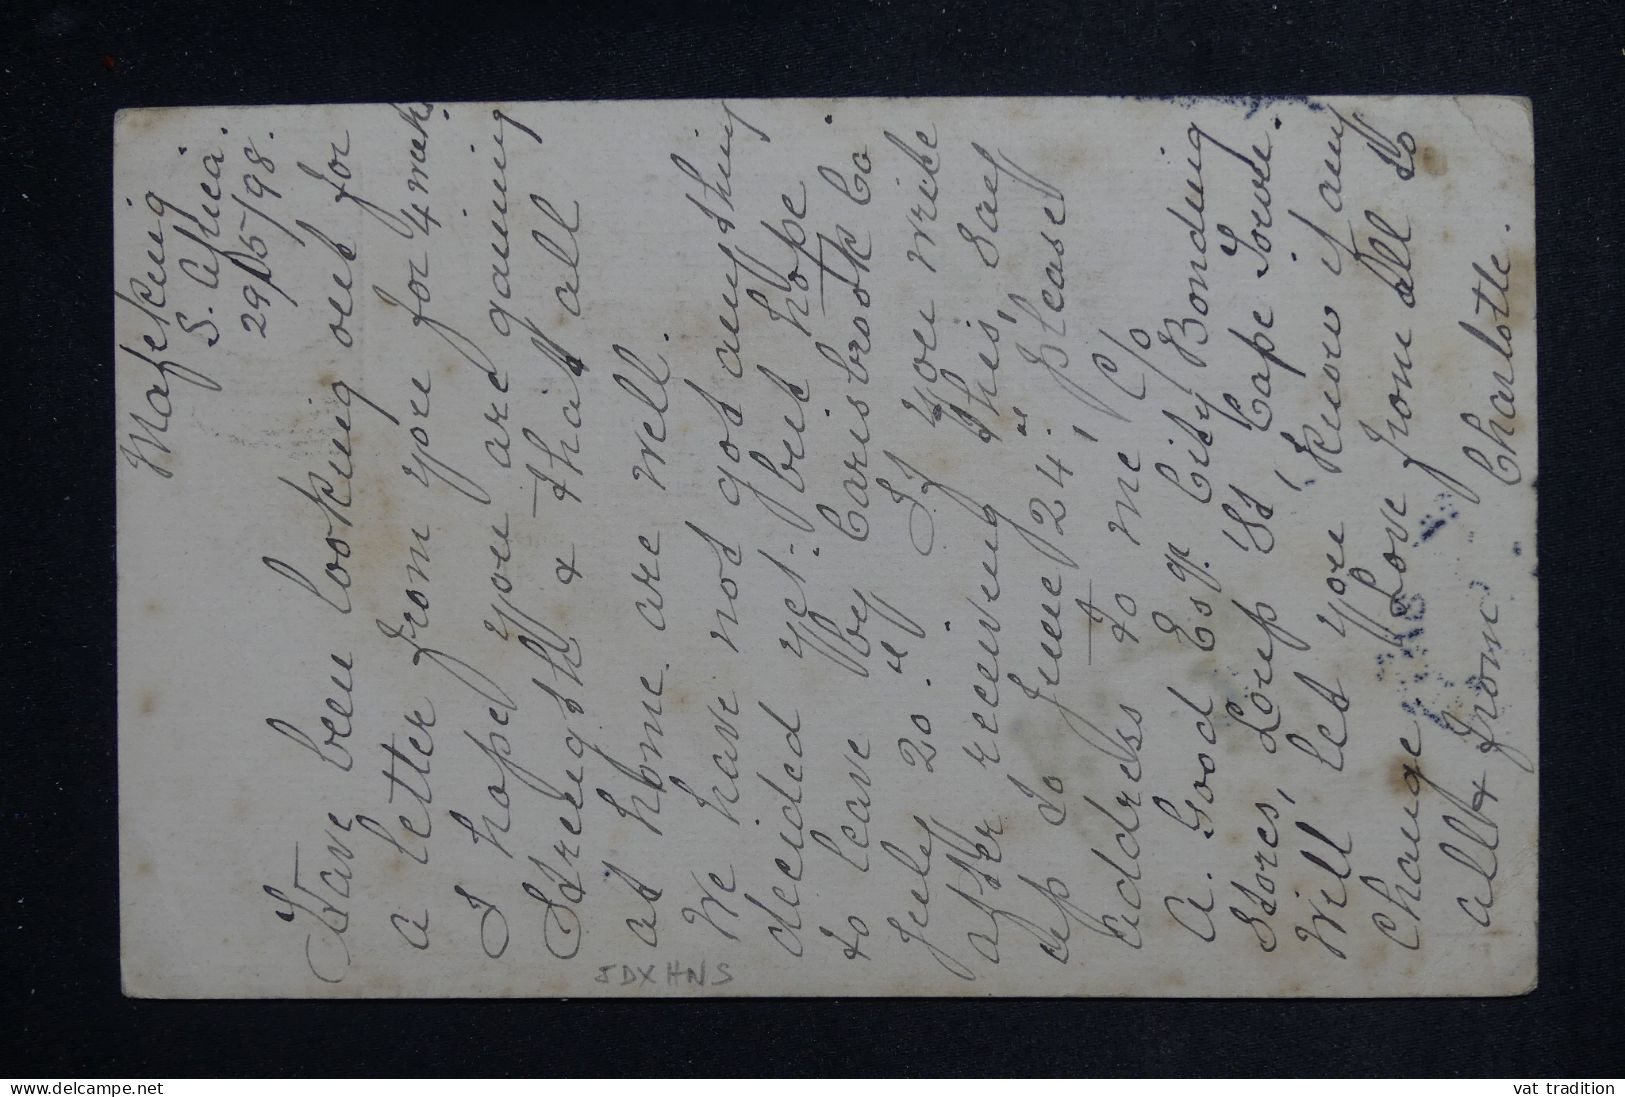 Mafeking
S. Africa.
29/5/98.
Have been looking out for
a letter from you for 4 weeks.
I hope you are gaining
Strength & that all
at home are well.
We have not got anything
decided yet - but hope
to leave by Carisbrook Co
July 20." If you write
after receiving this, say
up to June 24", please
address to me C/o
A. Good Esq. City Bonding
Stores, Loup St Cape Towne.
Will let you know if any
Change Love from all to
all & from Charlotte.
JDXHNS
www.delcampe.net
vat tradition